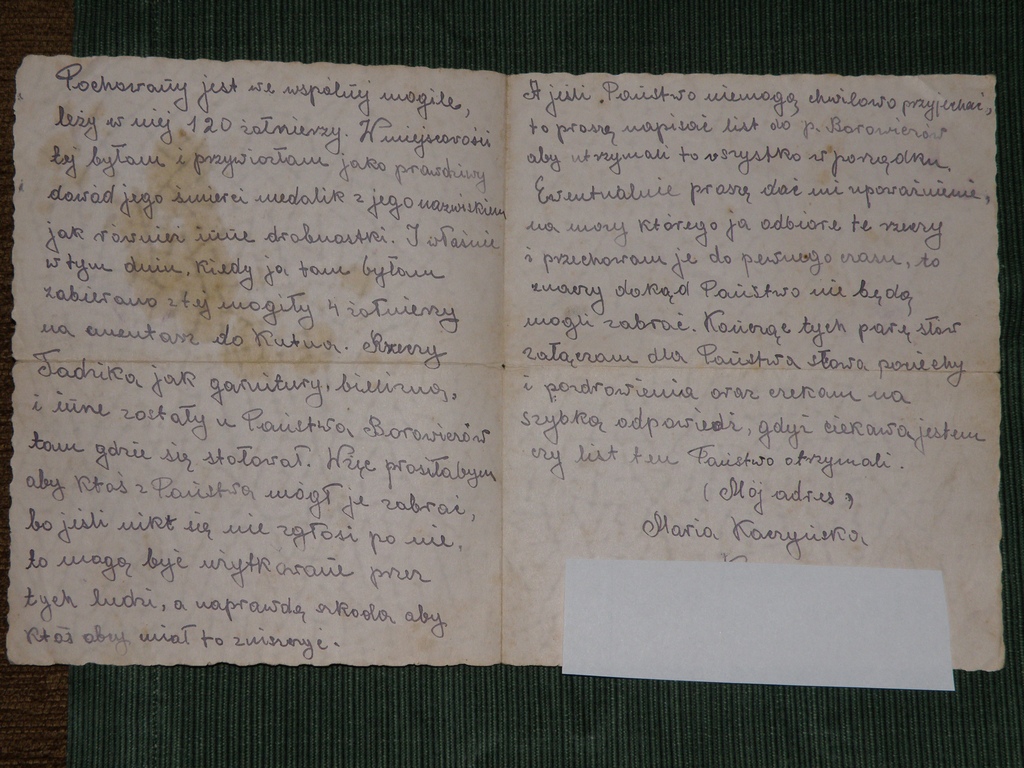 Pochowany jest we wspólnej mogile,
leży w niej 120 żołnierzy. W miejscowości
tej byłam i przywiozłam jako prawdziwy
dowód jego śmierci medalik z jego nazwiskiem
jak również inne drobnostki. I właśnie
w tym dniu, kiedy ja tam byłam
zabierano z tej mogiły 4 żołnierzy
na cmentarz do Kutna. Rzeczy
Tadzika jak garnitury, bielizna,
i inne zostały u Państwa Borowiczów
tam gdzie się stołował. Więc prosiłabym
aby ktoś z Państwa mógł je zabrać,
bo jeśli nikt się nie zgłosi po nie,
to mogą być użytkowane przez
tych ludzi, a naprawdę szkoda aby
ktoś obcy miał to zniszczyć.
A jeśli Państwo niemogą chwilowo przyjechać,
to proszę napisać list do p. Borowiczów
aby utrzymali to wszystko w porządku.
Ewentualnie proszę dać mi upoważnienie,
na mocy którego ja odbiorę te rzeczy
i przechowam je do pewnego czasu, to
znaczy dokąd Państwo nie będą
mogli zabrać. Kończąc tych parę słów
załączam dla Państwa słowa pociechy
i pozdrowienia oraz czekam na
szybką odpowiedź, gdyż ciekawa jestem
czy list ten Państwo otrzymali.
(Mój adres)
Maria Kaczyńska